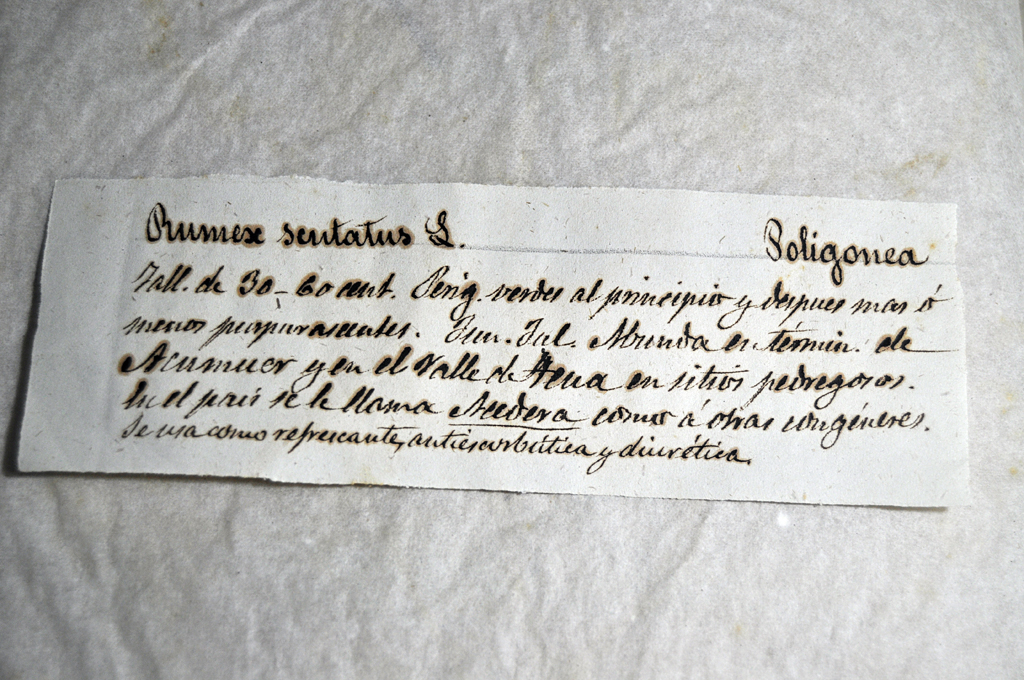 Rumex scutatus L. Poligonea
Tall. de 30-60 cent. Perig. verdes al principio y despues mas ó
menos purpurascentes. Jun. Jul. Abunda en términ. de
Acumuer y en el Valle de Tena en sitios pedregosos.
En el pais se le llama Acedera como á otras congéneres.
Se usa como refrescante, antiescorbútica y diurética.